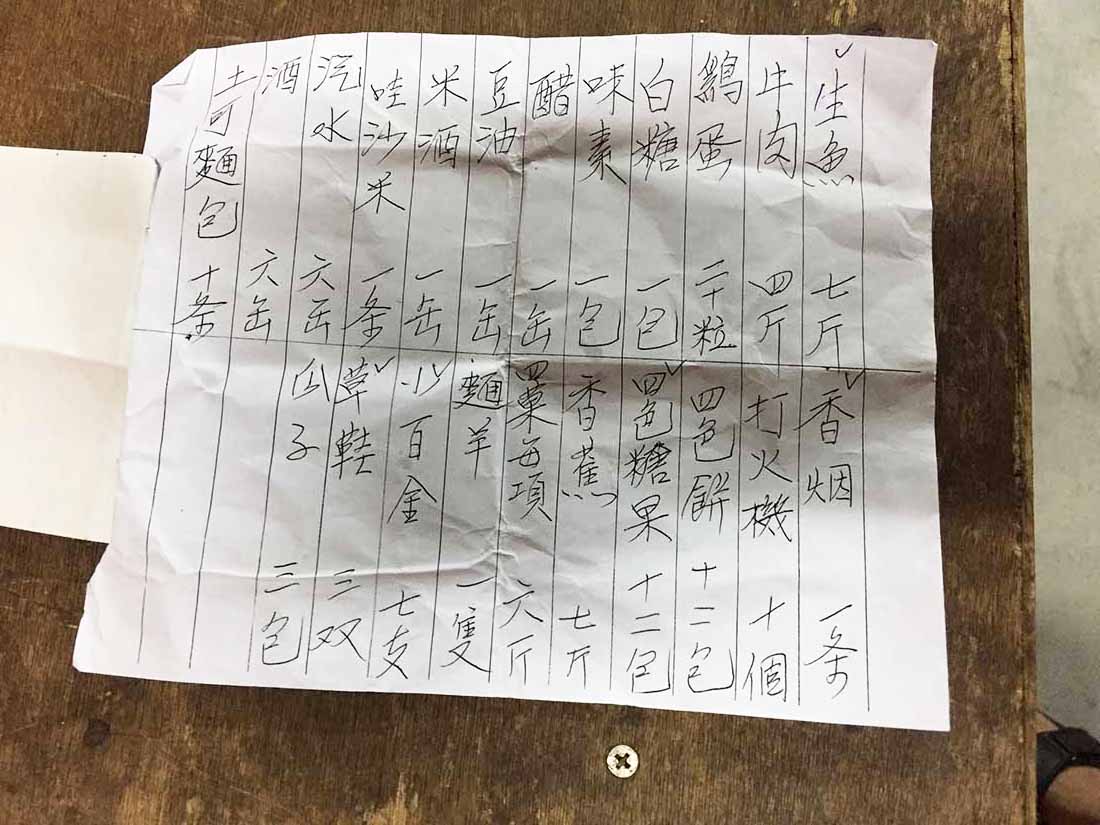 生魚 七斤
牛肉 四斤
鷄蛋 二十粒
白糖 一包
味素 一包
醋 一缶
豆油 一缶
米酒 一缶
哇沙米 一条
汽水 六缶
酒 六缶
土可麵包 十条
香烟 一条
打火機 十個
四色餅 十二包
四色糖果 十二包
香蕉 七斤
四菓每項 六斤
麵羊 一隻
小百金 七支
草鞋 三双
瓜子 三包